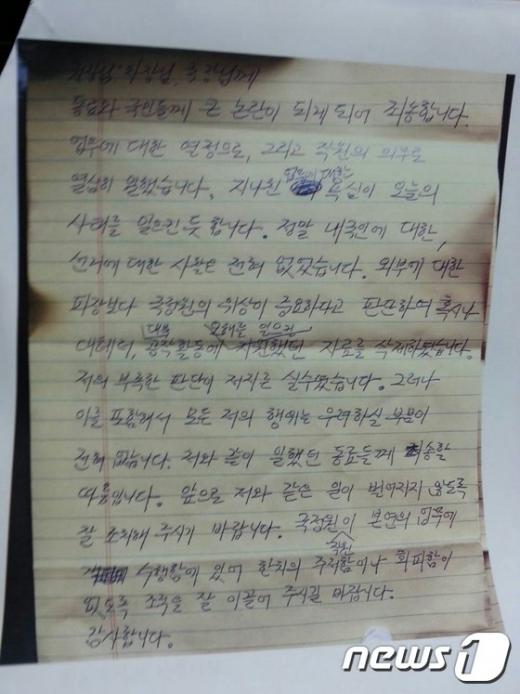 원장님, 차장님, 국장님께
동료와 국민들께 큰 논란이 되게 되어 죄송합니다.
업무에 대한 열정으로, 그리고 직원의 의무로
열심히 일했습니다. 지나친 업무에 대한 욕심이 오늘의
사태를 일으킨 듯 합니다. 정말 내국인에 대한,
선거에 대한 사찰은 전혀 없었습니다. 외부에 대한
파장보다 국정원의 위상이 중요하다고 판단하여 혹시나
대테러, 대북 공작활동에 오해를 일으킨 지원했던 자료를 삭제하였습니다.
저의 부족한 판단이 저지른 실수였습니다. 그러나
이를 포함해서 모든 저의 행위는 우려하실 부분이
전혀 없습니다. 저와 같이 일했던 동료들께 죄송할
따름입니다. 앞으로 저와 같은 일이 벌어지지 않도록
잘 조치해 주시기 바랍니다. 국정원 직원이 본연의 업무에
수행함에 있어 한치의 주저함이나 회피함이
없도록 조직을 잘 이끌어 주시길 바랍니다.
감사합니다.
news1